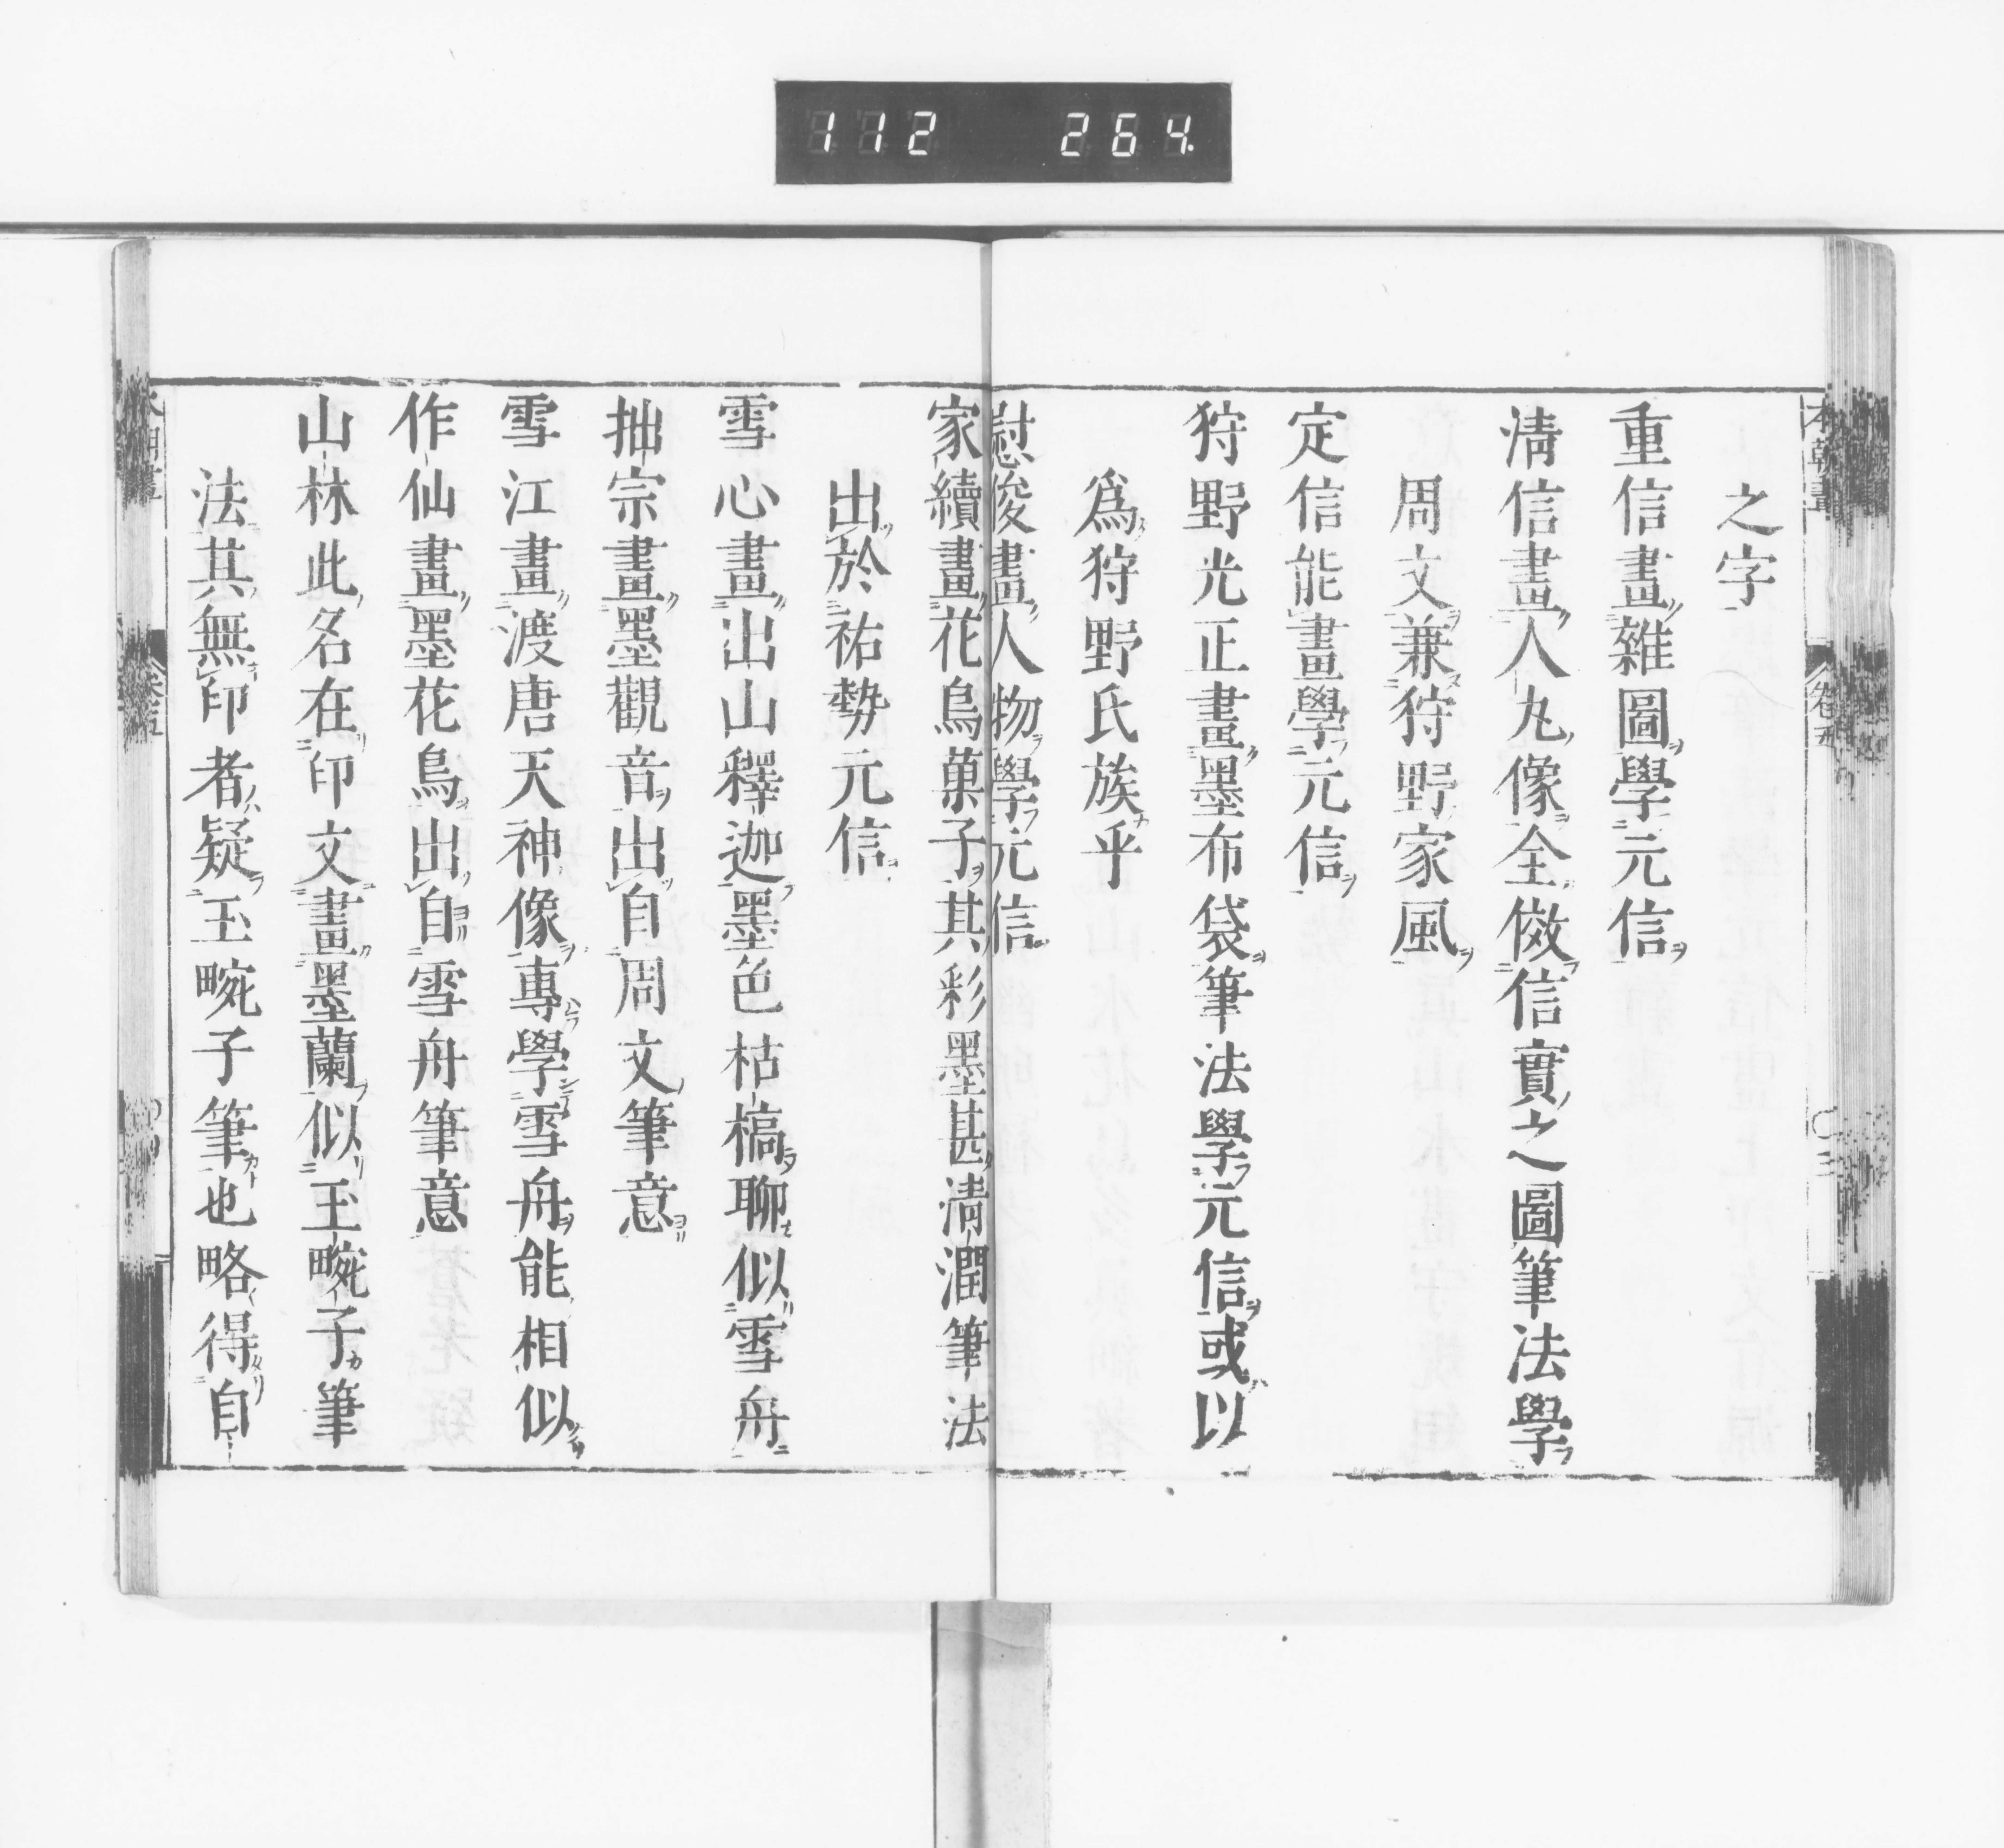 112 264
本朝畫 卷五
之字
重信畫雜圖學元信
淸信畫人丸像全倣信實之圖筆法學
周文兼狩野家風
定信能畫學元信
狩野光正畫墨布袋筆法學元信或以
爲狩野氏族乎
慰俊畫人物學元信
家續畫花鳥菓子其彩墨甚淸潤筆法
出於祐勢元信
雪心畫出山釋迦墨色枯槁聊似雪舟
拙宗畫墨觀音出自周文筆意
雪江畫渡唐天神像專學雪舟能相似
作仙畫墨花鳥出自雪舟筆意
山林此名在印文畫墨蘭似玉畹子筆
法其無印者疑玉畹子筆也略得自